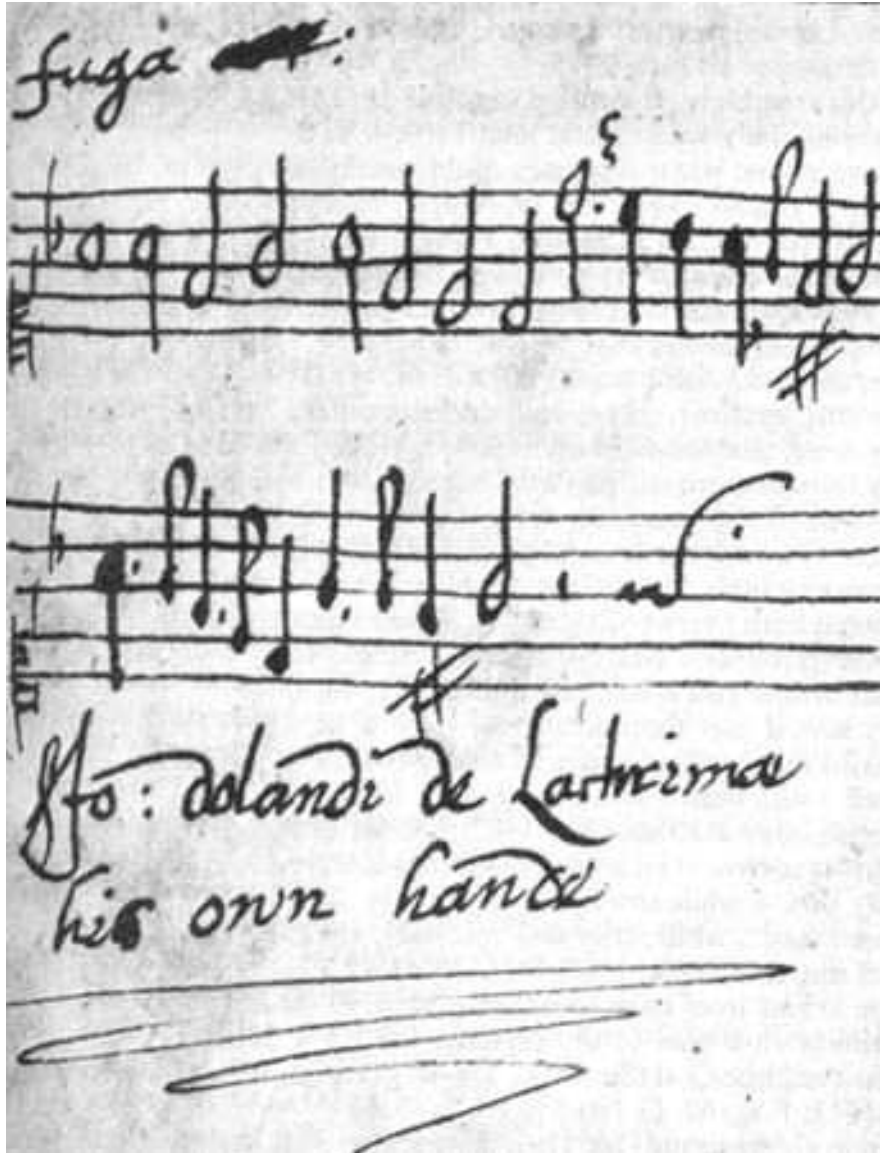 fuga :
Jo: dolandi de Lachrimae
his own hande